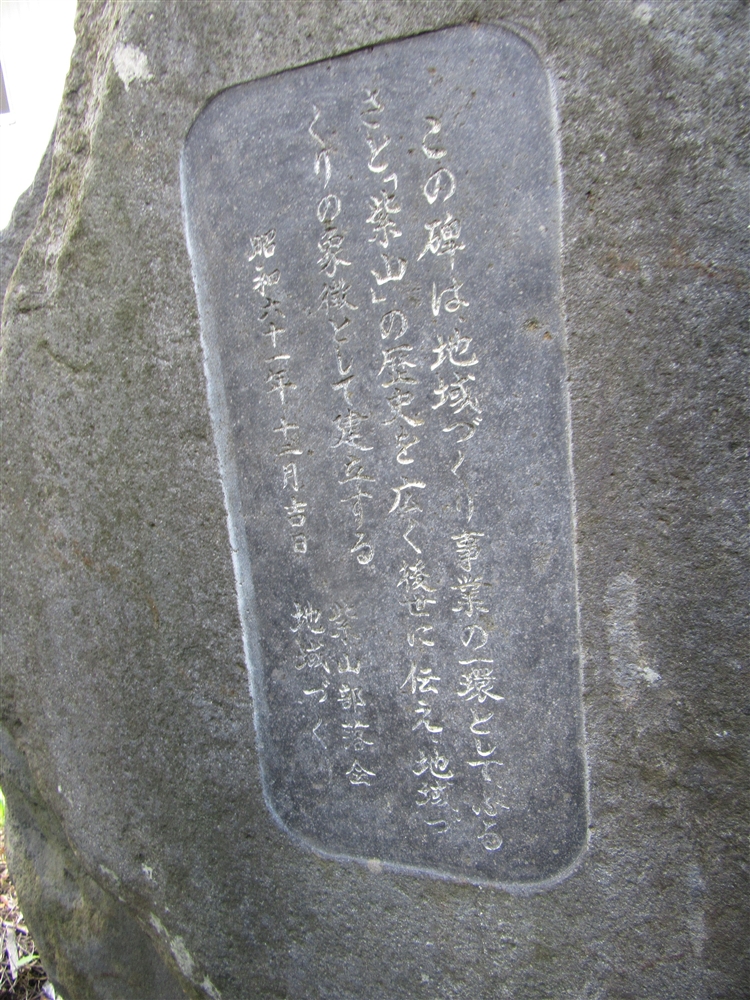 この碑は地域づくり事業の一環としてふる
さと「紫山」の歴史を広く後世に伝え地域づ
くりの象徴として建立する
昭和六十一年十二月吉日
紫山部落会
地域づくり